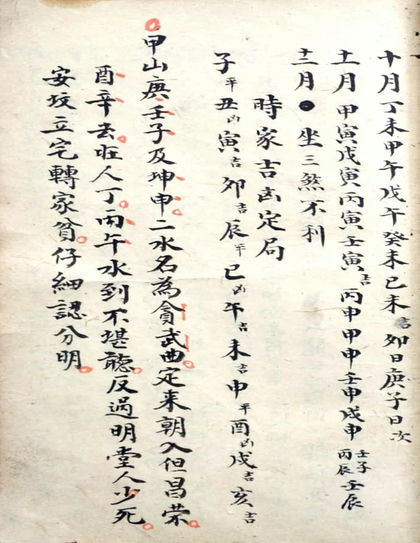 十月丁未甲午戊午癸未己未吉卯日庚子日次
十一月甲寅戊寅丙寅壬寅吉丙申甲申壬申戊申壬子丙辰壬辰
十二月●坐三煞不利
時家吉凶定局
子平丑凶寅吉卯吉辰平巳凶午吉未吉申平酉凶戌吉亥吉
甲山庚壬子及坤申二水名為貪武曲定来朝入但昌荣
酉辛去旺人丁丙午水到不堪聽反過明堂人少死
安坟立宅轉家貧仔細認分明